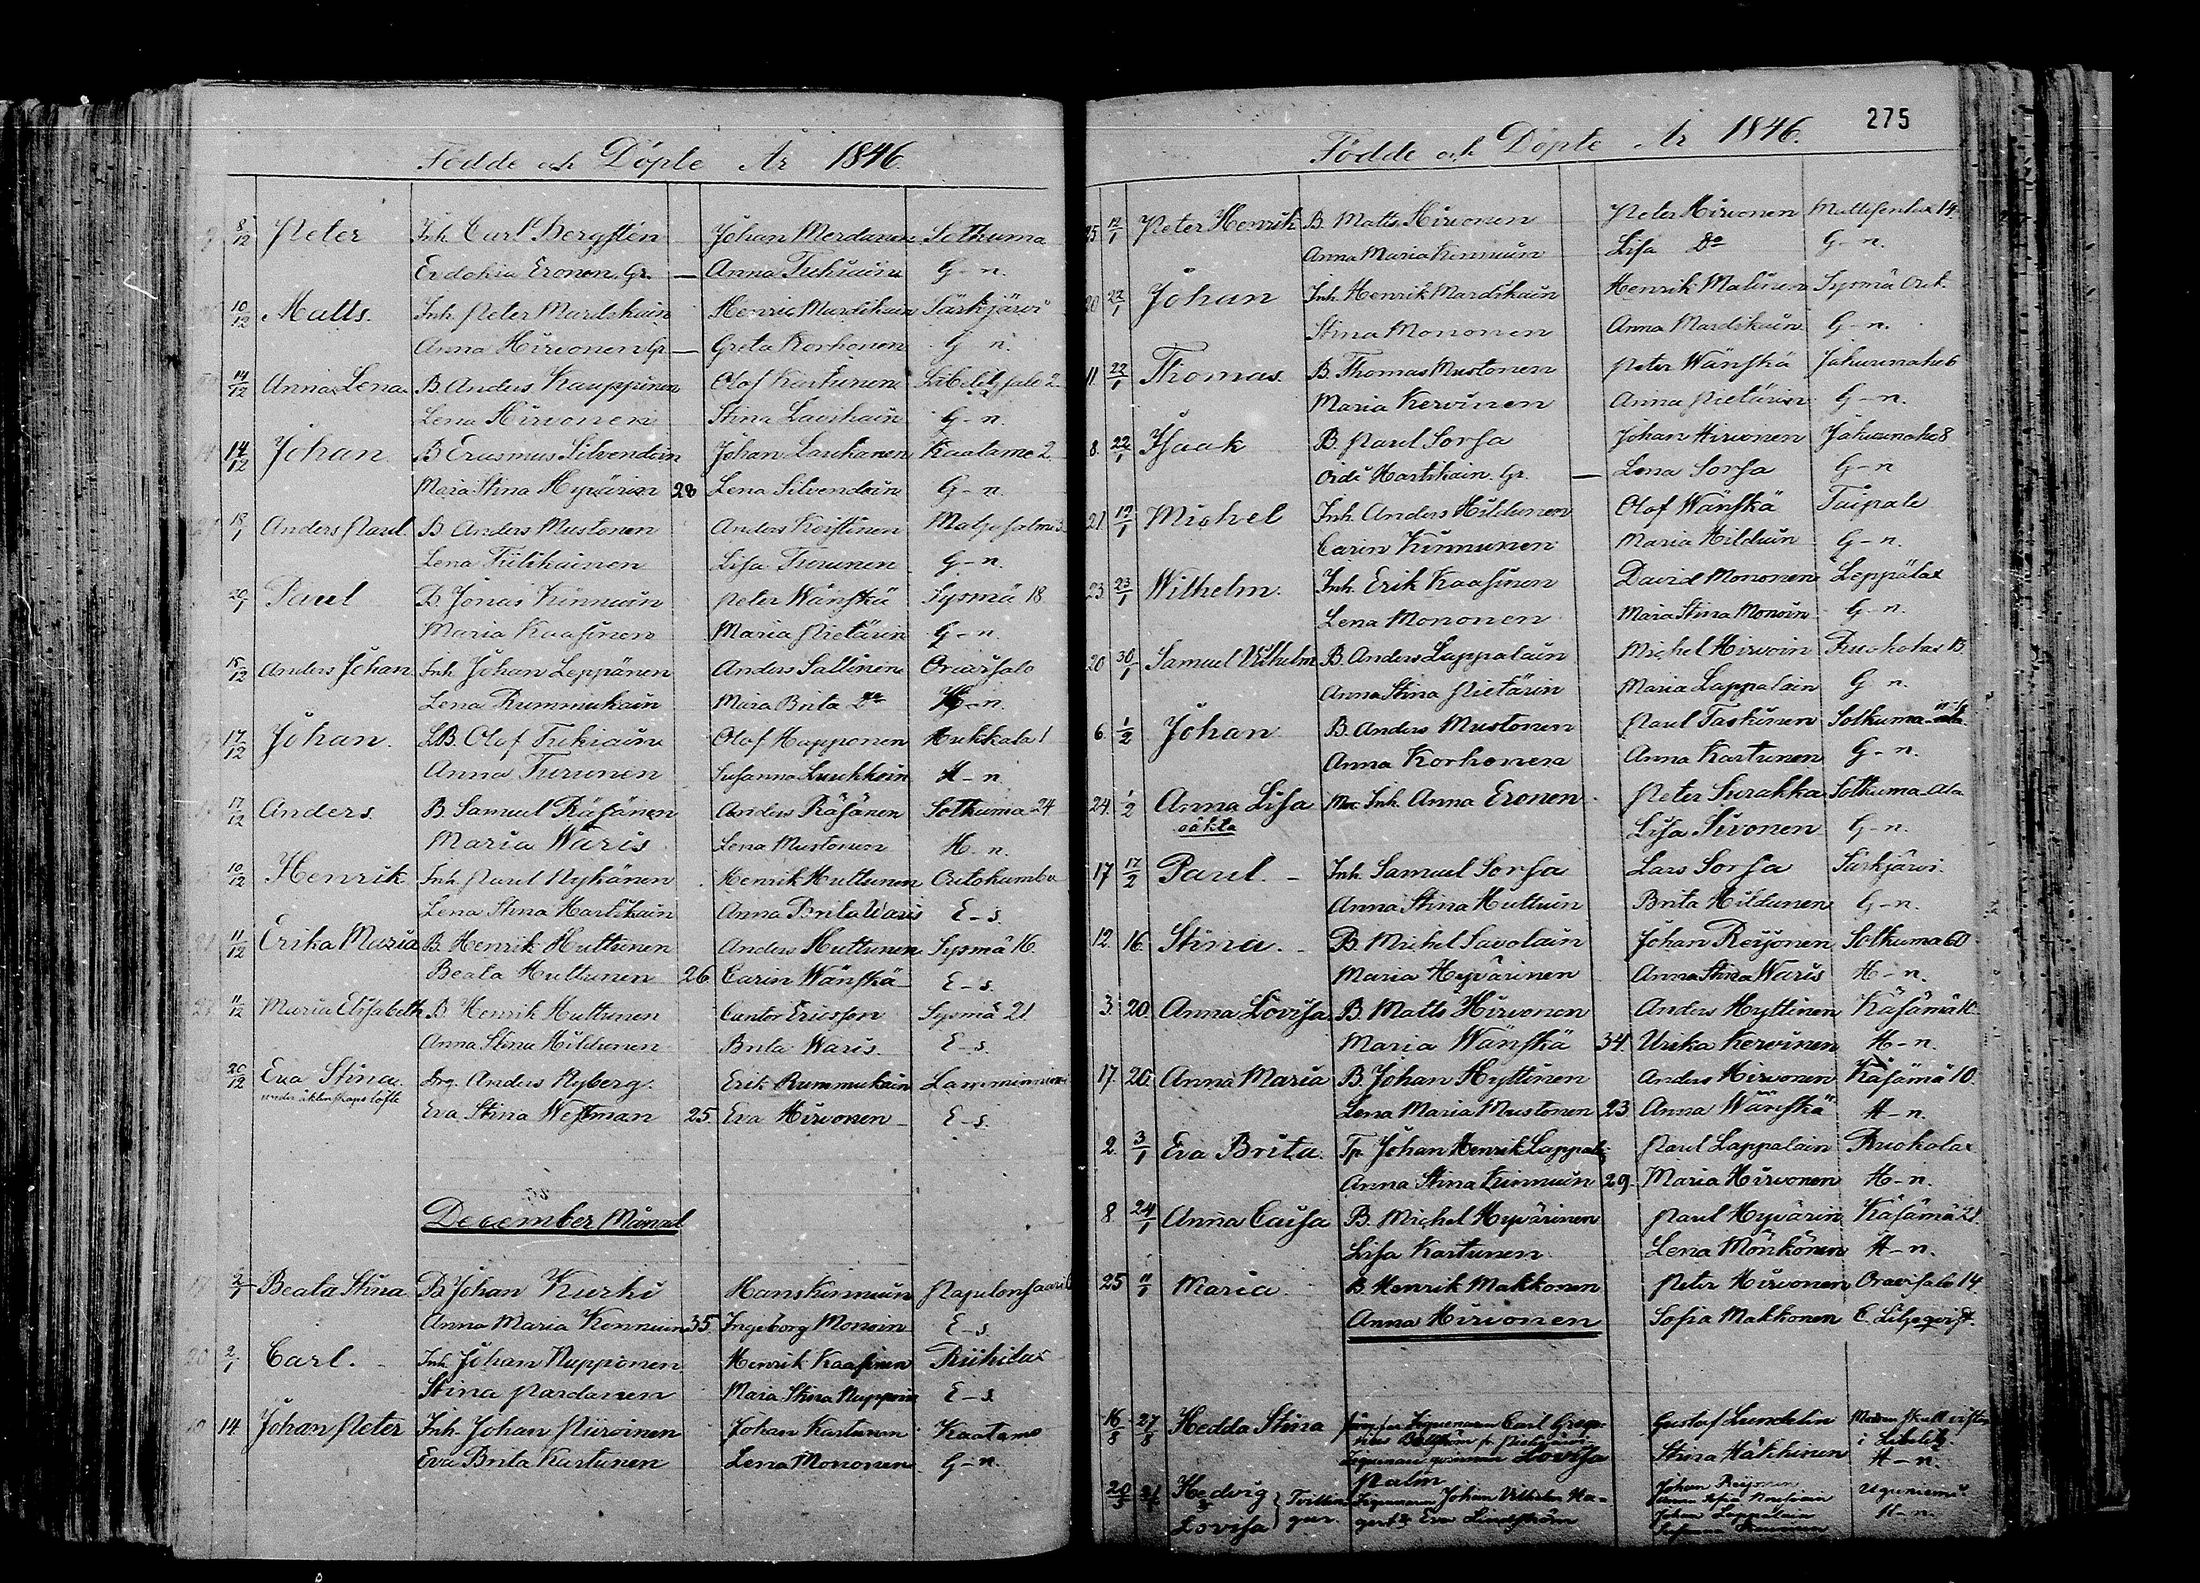 Födde och Döpte År 1846.
8/12 Peter Inh. Carl Bergstén Johan Merdanen Sotkuma
Evdokia Eronen Gr. — Anna Tukiain G-n.
10/12 Matts. Inh. Peter Mardikain Henric Mardikain Särkjärvi
Anna Hirvonen Gr — Greta Korhonen G n.
14/12 Anna Lena B. Anders Kauppinen Olof Karttunen Libelitz 2
Lena Hirvonen Stina Laurkain G-n.
14/12 Johan. B Erasmus Silvendoin Johan Laukanen Kaatamo 2.
Maria Stina Hyvärin 28 Lena Silvendoin G-n.
18/1 Anders Paul B Anders Mustonen Anders Koistinen
Lena Tiilikainen Lisa Turunen G-n.
20/1 Paul B Jonas Kinnuin Peter Wänskä Sysmä 18
Maria Kaasinen Maria Pietärin G-n.
15/12 Anders Johan Inh Johan Leppänen Anders Sallinen Oravisalo
Lena Rummukain Maria Brita Do H-n.
17/12 Johan. LB. Olof Tukiain Olof Happonen Hukkala 1
Anna Turunen Susanna H-n
17/12 Anders B. Samuel Räsänen Anders Räsänen Sotkuma 24
Maria Waris Lena Mustonen H.n.
10/12 Henrik Inh. Paul Nykänen Henrik Huttunen Outokumbu
Lena Stina Hartikain Anna Brita Waris E-s.
11/12 Erika Maria B. Henrik Huttunen Anders Huttunen Sysmä 16.
Beata Huttunen 26 Carin Wänskä E-s.
11/12 Maria Elisabeth B Henrik Huttunen Cantor Ericsson Sysmä 21
Anna Stina Hildunen Brita Waris. E-s.
20/12 Eva Stina. Drg. Anders Nyberg. Erik Rummukain
under äktenskaps löfte Eva Stina Westman 25 Eva Hirvonen E-s.
December Månad
2/1 Beata Stina B Johan Kurki Hans Kinnuin
Anna Maria Kinnuin 35 Ingeborg Monoin E-s.
2/1 Carl. Inh. Johan Nupponen Henrik Kaasinen Riihilax
Stina Pardanen Maria Stina E-s.
14 Johan Peter Inh. Johan Piiroinen Johan Kartunen Kaatamo
Eva Brita Kartunen Lena Mononen G-n.
275
Födde och Döpte År 1846.
25 12/1 Peter Henrik B. Matts Hirvonen Peter Hirvonen 14
Anna Maria Kinnuin Lisa Do G-n.
20 22/1 Johan Inh. Henrik Mardikain Henrik Malinen Sysmä
Stina Mononen Anna Mardikain G-n.
11 22/1 Thomas. B. Thomas Mustonen Peter Wänskä Jakunnako 6
Maria Kervinen Anna Pietärin G-n.
8. 22/1 Isaak B. Paul Sorsa Johan Hirvonen Jakunnako 8
Hartikain Gr. — Lena Sorsa G-n
21 17/1 Michel Inh. Anders Hildunen Olof Wänskä Taipale
Carin Kinnunen Maria Hilduin G-n.
23 23/1 Wilhelm. Inh. Erik Kaasinen David Mononen Leppälax
Lena Mononen Maria Stina Monoin G-n.
20 30/1 Samuel Vilhelm B. Anders Lappalain Michel Hirvoin Ruokolax 13.
Anna Stina Pietärin Maria Lappalain G n.
6. 1/2 Johan B. Anders Mustonen Paul Taskinen Sotkuma
Anna Korhonen Anna Kartunen G-n.
24. 1/2 Anna Lisa Inh. Anna Eronen Peter Surakka Sotkuma
oäkta Lisa Sivonen G-n.
17 17/2 Paul. - Inh. Samuel Sorsa Lars Sorsa Särkjärvi.
Anna Stina Huttuin Brita Hildunen G-n.
12. 16. Stina. - B. Michel Savolain Johan Reijonen Sotkuma 60
Maria Hyvärinen Anna Stina Waris H-n.
3. 20. Anna Lovisa B. Matts Hirvonen Anders Hyttinen Käsämä 10.
Maria Wänskä 34. Ulrika Kervinen H-n.
17. 20. Anna Maria B. Johan Hyttinen Anders Hirvonen Käsämä 10.
Lena Maria Mustonen 23 Anna Wänskä H-n.
2. 3/1 Eva Brita. Tp. Johan Henrik Lappal: Paul Lappalain Ruokolax
Anna Stina Kinnuin 29. Maria Hirvonen H-n.
8 24/1 Anna Caisa B. Michel Hyvärinen Paul Hyvärin Käsämä 21.
Lisa Kartunen Lena Mönkönen H-n.
25 11/1 Maria B. Henrik Makkonen Peter Hirvonen Oravisalo 14.
Anna Hirvonen Sofia Makkonen C. Liljeqvist.
16/8 27/8 Hedda Stina Zigenaren Carl Gustaf Lundelin
Lovisa Stina Häkkinen i Libelitz. H-n.
Palm
20/3 Hedvig } Tvillin Zigenaren Johan Vilhelm Ha- Johan Reijonen
& Lovisa } gar. gert & Eva Lindström Johan Lappalain H-n.